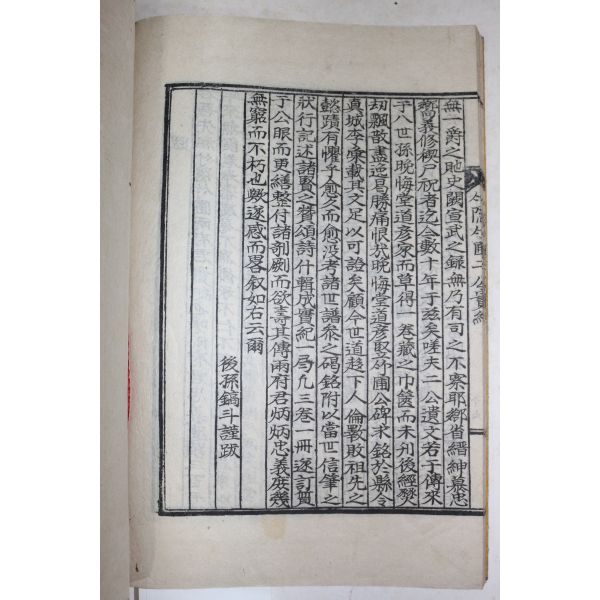 無一爵之貤史闕宣武之録無乃有司之不察耶鄉省縉紳慕忠
鄉曺義修禊尸祝者迄今數十年于玆矣嗟夫二公遺文若干傳來
于八世孫晚悔堂道彦家而草得一卷藏之巾篋而未刋後經燹
刼飄散盡逸曷勝痛恨哉晚悔堂道彦竪竹圃公碑求銘於縣令
真城李彙載其文足以可證矣顧今世道趍下人倫斁敗祖先之
懿蹟有懼乎愈久而愈没考諸世譜叅之碣銘附以當世信筆之
狀行記述諸賢之贊頌詩什輯成實紀一局凡三卷一冊遂訂質
于公眼而更繕整付諸剞劂而欲壽其傳兩府君炳炳忠義庶幾
無窮而不朽也歟遂感而畧叙如右云爾
後孫鎬斗謹跋
二公實紀